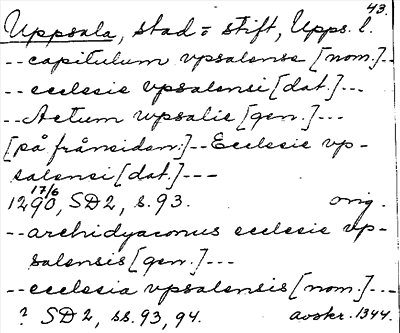 43.
Uppsala, stad o stift, Upps. l.
--capitulum vpsalense [nom.]--
--ecclesie vpsalensi [dat.]---
--Actum upsalie [gen.]---
[på frånsidan:]--Ecclesie vp-
salensi [dat.]---
17/6
1290, SD2, s. 93. orig.
--archidyaconus ecclesie vp-
salensis [gen.]---
--ecclesia vpsalensis [nom.]---
? SD2, ss. 93, 94. avskr. 1344.